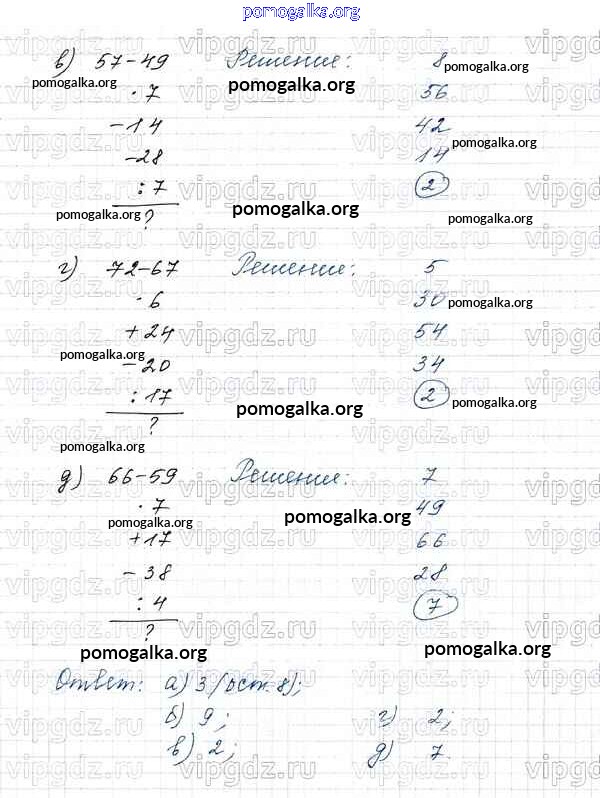 pomogalka.org
в) 57-49 Решение: 8
pomogalka.org pomogalka.org pomogalka.org
· 7 56
-14 42
pomogalka.org
-28 14
: 7 2
pomogalka.org pomogalka.org pomogalka.org
?
г) 72-67 Решение: 5
· 6 30
pomogalka.org
+ 24 54
pomogalka.org
- 20 34
: 17 2
pomogalka.org pomogalka.org
?
pomogalka.org
д) 66-59 Решение: 7
· 7 49
pomogalka.org pomogalka.org
+17 66
- 38 28
: 4 7
?
pomogalka.org pomogalka.org
Ответ: а) 3 (ост. 8);
б) 9; г) 2;
в) 2; д) 7.
vipgdz.ru